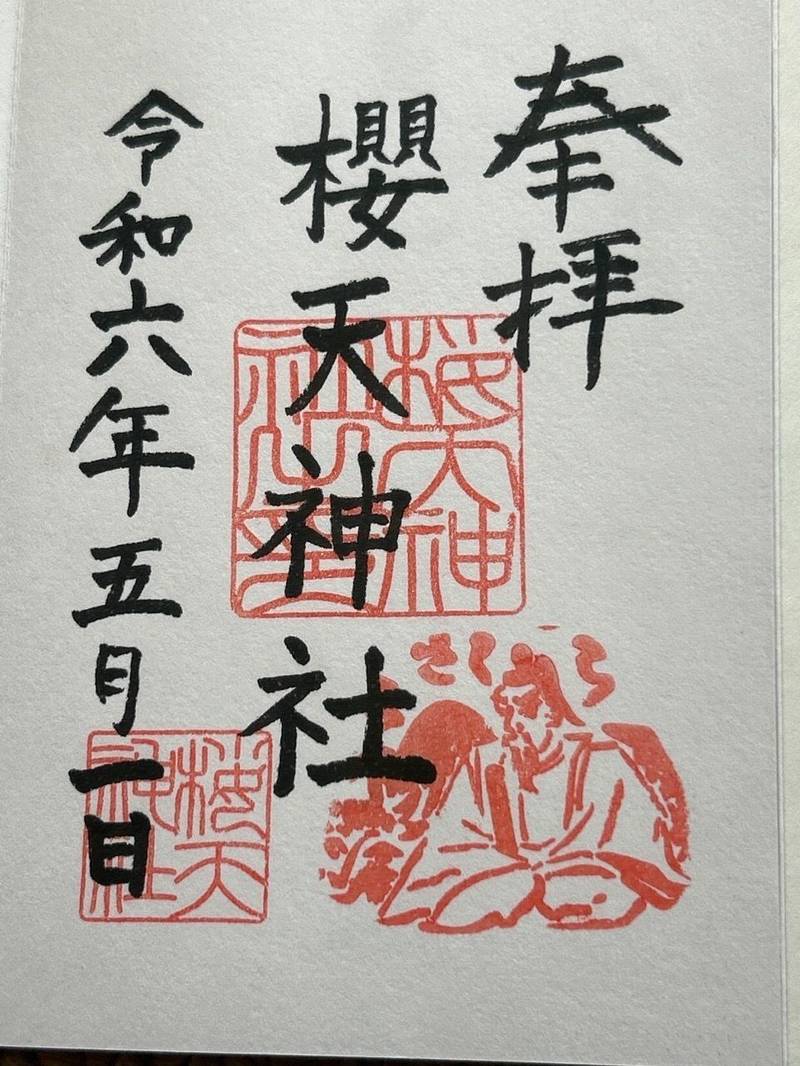 奉拝
櫻天神社
令和六年五月一日
桜天神社之印
さくら
桜天神社